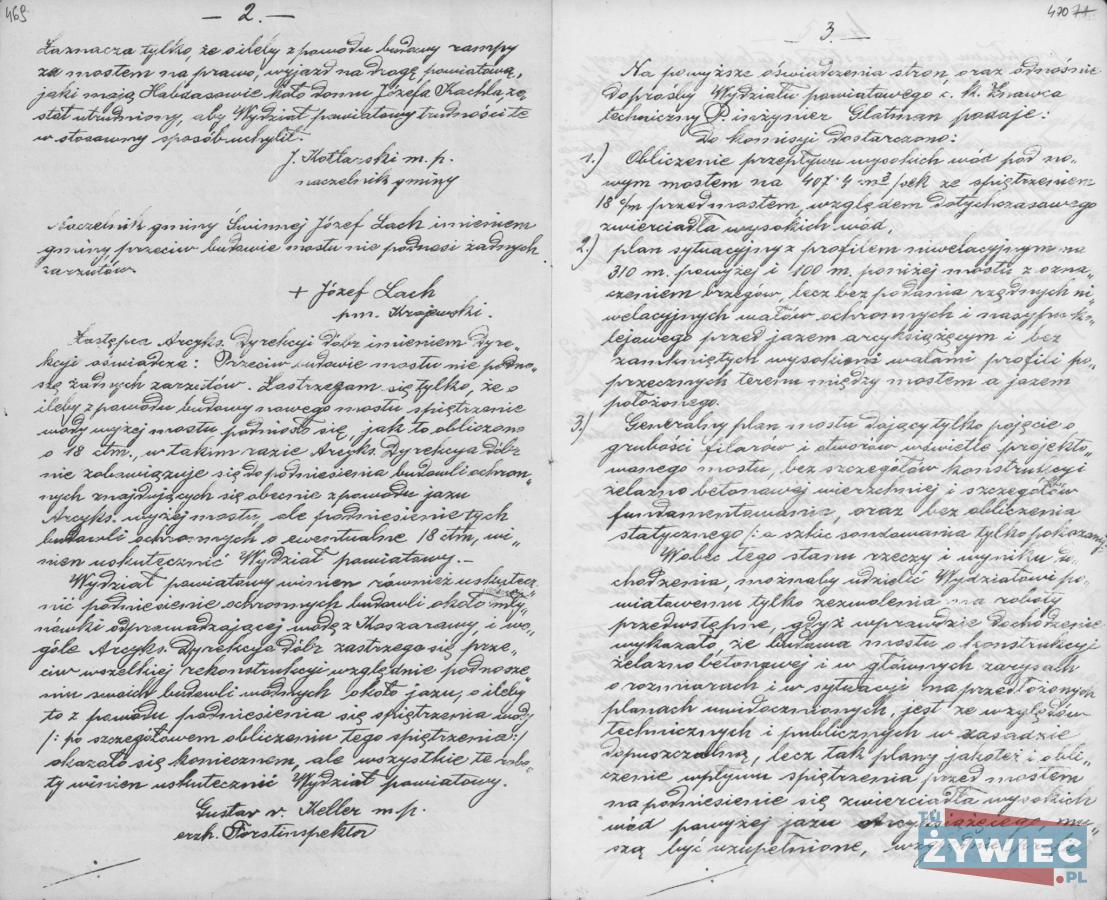 469
— 2. —
Zaznacza tylko, że o ileby z powodu budowy rampy
za mostem na prawo, wyjazd na drogę powiatową,
jaki mają Habdasowie koło domu Józefa Kachla, zo„
stał utrudniony, aby Wydział powiatowy trudności te
w stosowny sposób uchylił.
J. Kotlarski m. p.
naczelnik gminy
Naczelnik gminy Świnnej Józef Lach imieniem
gminy, przeciw budowie mostu nie podnosi żadnych
zarzutów.
+ Józef Lach
pm. Krajewski.
Zastępca Arcyks. Dyrekcyi dóbr imieniem Dyre„
kcyi oświadcza: Przeciw budowie mostu nie podno„
szę żadnych zarzutów. Zastrzegam się tylko, że o
ileby z powodu budowy nowego mostu spiętrzenie
wody wyżej mostu podniosło się, jak to obliczono
o 18 ctm., w takim razie Arcyks. Dyrekcya dóbr
nie zobowiązuje się do podniesienia budowli ochron„
nych znajdujących się obecnie z powodu jazu
Arcyks. wyżej mostu, ale podniesienie tych
budowli ochronnych o ewentualne 18 ctm, wi„
nien uskutecznić Wydział powiatowy. —
Wydział powiatowy winien również uskutecz„
nić podniesienie ochronnych budowli około mły„
nówki odprowadzającej wodę z Koszarawy, i wo„
góle Arcyks. Dyrekcya dóbr zastrzega się prze„
ciw wszelkiej rekonstrukcyi względnie podnosze„
niu swoich budowli wodnych około jazu, o ileby
to z powodu podniesienia się spiętrzenia wody
/: po szczegółowem obliczeniu tego spiętrzenia :/
okazało się koniecznem, ale wszystkie te robo„
ty winien uskutecznić Wydział powiatowy.
Gustav v. Keller m. p.
erzh. Forstinspektor
470 71
3. —
Na powyższe oświadczenia stron, oraz odnośnie
do prośby Wydziału powiatowego c. k. Znawca
techniczny P. inżynier Glatman podaje:
Do komisyi dostarczono:
1.) Obliczenie przepływu wysokich wód pod no„
wym mostem na 407·4 m3/sek ze spiętrzeniem
18 c/m przed mostem, względem dotychczasowego
zwierciadła wysokich wód,
2.) plan sytuacyjny z profilem niwelacyjnym na
310 m. powyżej i 100 m. poniżej mostu z ozna„
czeniem brzegów, lecz bez podania rzędnych ni„
welacyjnych wałów ochronnych i nasypu ko„
lejowego przed jazem arcyksiążęcym i bez
zamkniętych wysokiemi wałami profili po„
przecznych terenu między mostem a jazem
położonego.
3.) Generalny plan mostu dający tylko pojęcie o
grubości filarów i otworów w świetle projekto„
wanego mostu, bez szczegółów konstrukcyi
żelazno betonowej wierzchniej i szczegółów
fundamentowania, oraz bez obliczenia
statycznego /: a szkic sondowania tylko pokazany :/
Wobec tego stanu rzeczy i wyniku do„
chodzenia, możnaby udzielić Wydziałowi po„
wiatowemu tylko zezwolenia na roboty
przedwstępne, gdyż wprawdzie dochodzenie
wykazało że budowa mostu o konstrukcyi
żelazno betonowej i w głównych zarysach
o rozmiarach i w sytuacyi na przedłożonych
planach uwidocznionych, jest ze względów
technicznych i publicznych w zasadzie
dopuszczalną, lecz tak plany jakoteż i obli„
czenie wpływu spiętrzenia przed mostem
na podniesienie się zwierciadła wysokich
wód powyżej jazu Arcyksiążęcego, mu„
szą być uzupełnione,
TO
ŻYWIEC
.PL